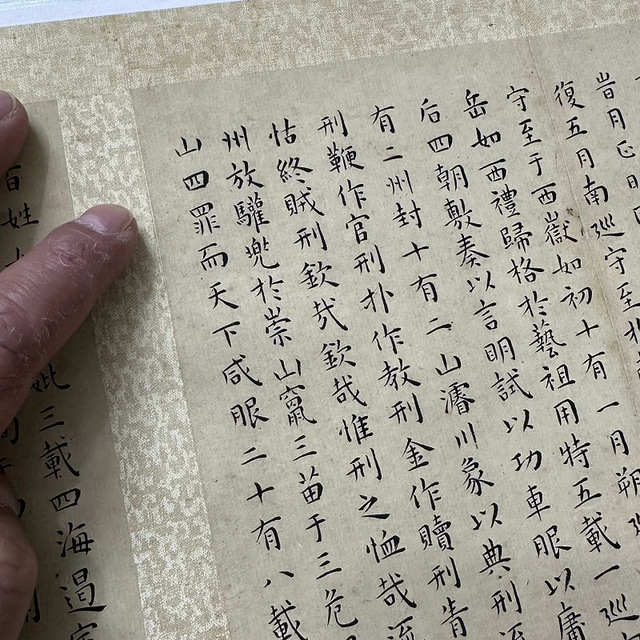 旹月正日
復五月南巡守至
守至于西嶽如初十有一月朔巡
岳如西禮歸格於藝祖用特五載一巡
后四朝敷奏以言明試以功車服以庸
有二州封十有二山濬川象以典刑流
刑鞭作官刑扑作教刑金作贖刑眚
怙終賊刑欽哉欽哉惟刑之恤哉流
州放驩兜於崇山竄三苗于三危
山四罪而天下咸服二十有八載
百姓
妣三載四海遏密